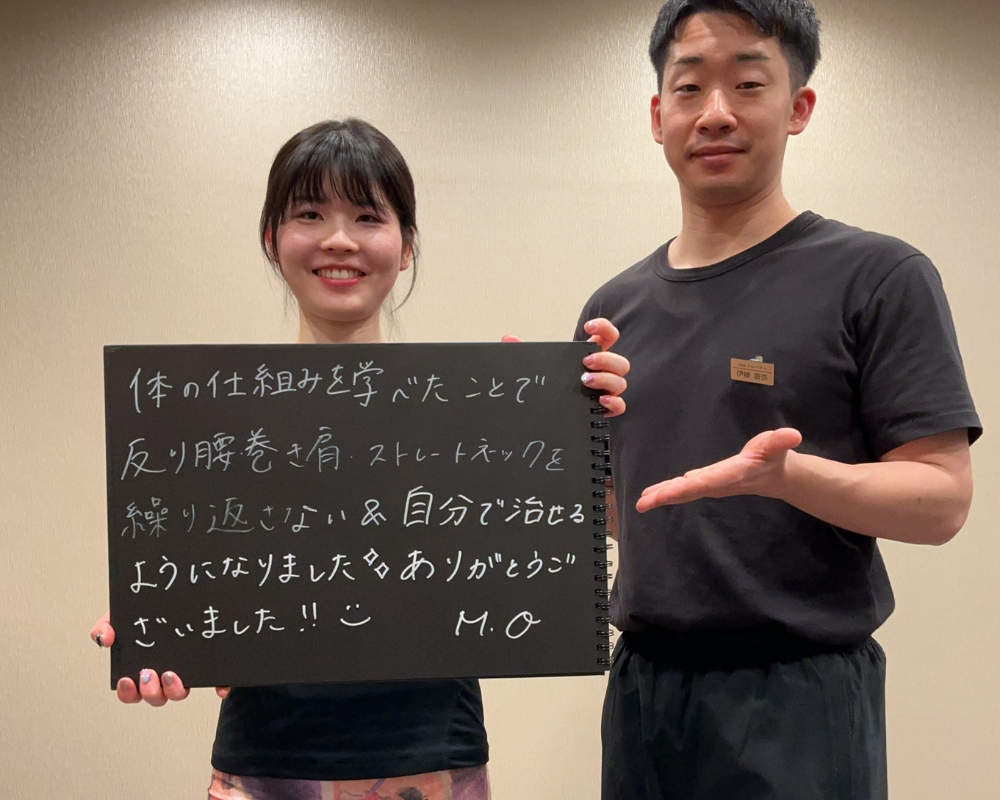 体の仕組みを学べたことで
反り腰・巻き肩・ストレートネックを
繰り返さない & 自分で治せる
ようになりました ありがとうご
ざいました!! M.O
伊藤